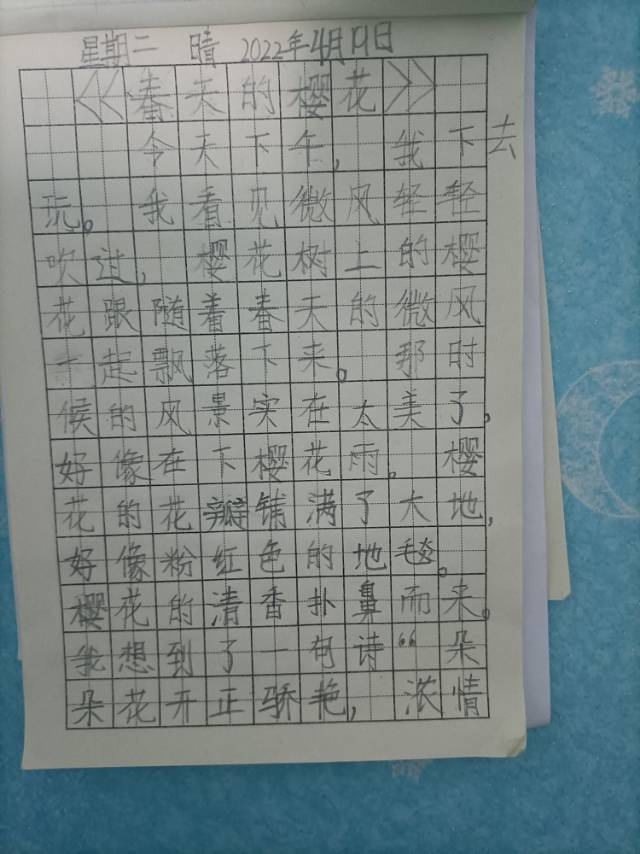 星期二 晴 2022年4月19日
《春天的樱花》
今天下午,我下去
玩。我看见微风轻轻
吹过,樱花树上的樱
花跟随着春天的微风
一起飘落下来。那时
候的风景实在太美了,
好像在下樱花雨。樱
花的花瓣铺满了大地,
好像粉红色的地毯。
樱花的清香扑鼻而来。
我想到了一句诗“朵
朵花开正骄艳,浓情